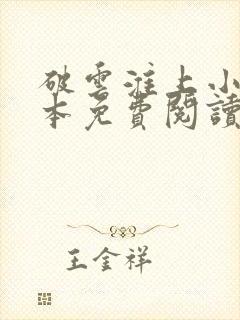 破雲淮上小
本免費閱讀
王金祥